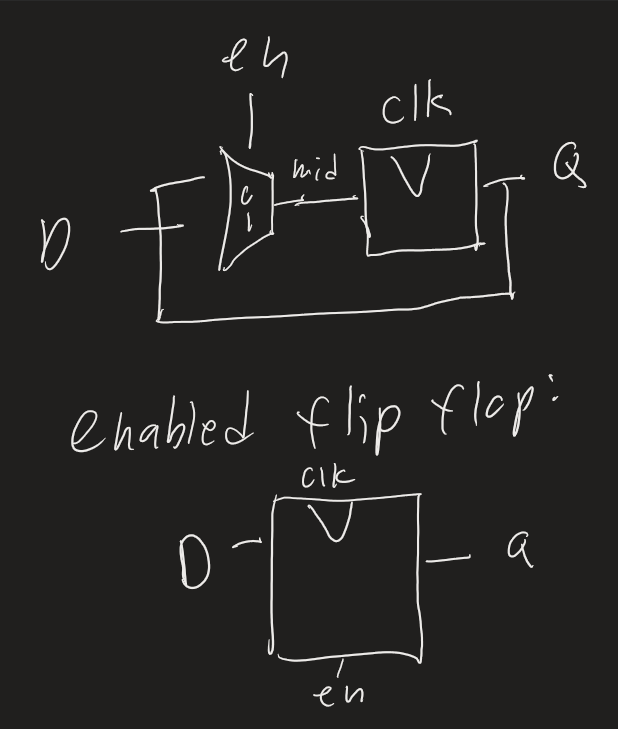 en
clk
mid
Q
0
1
D
enabled flip flop:
clk
D
Q
en